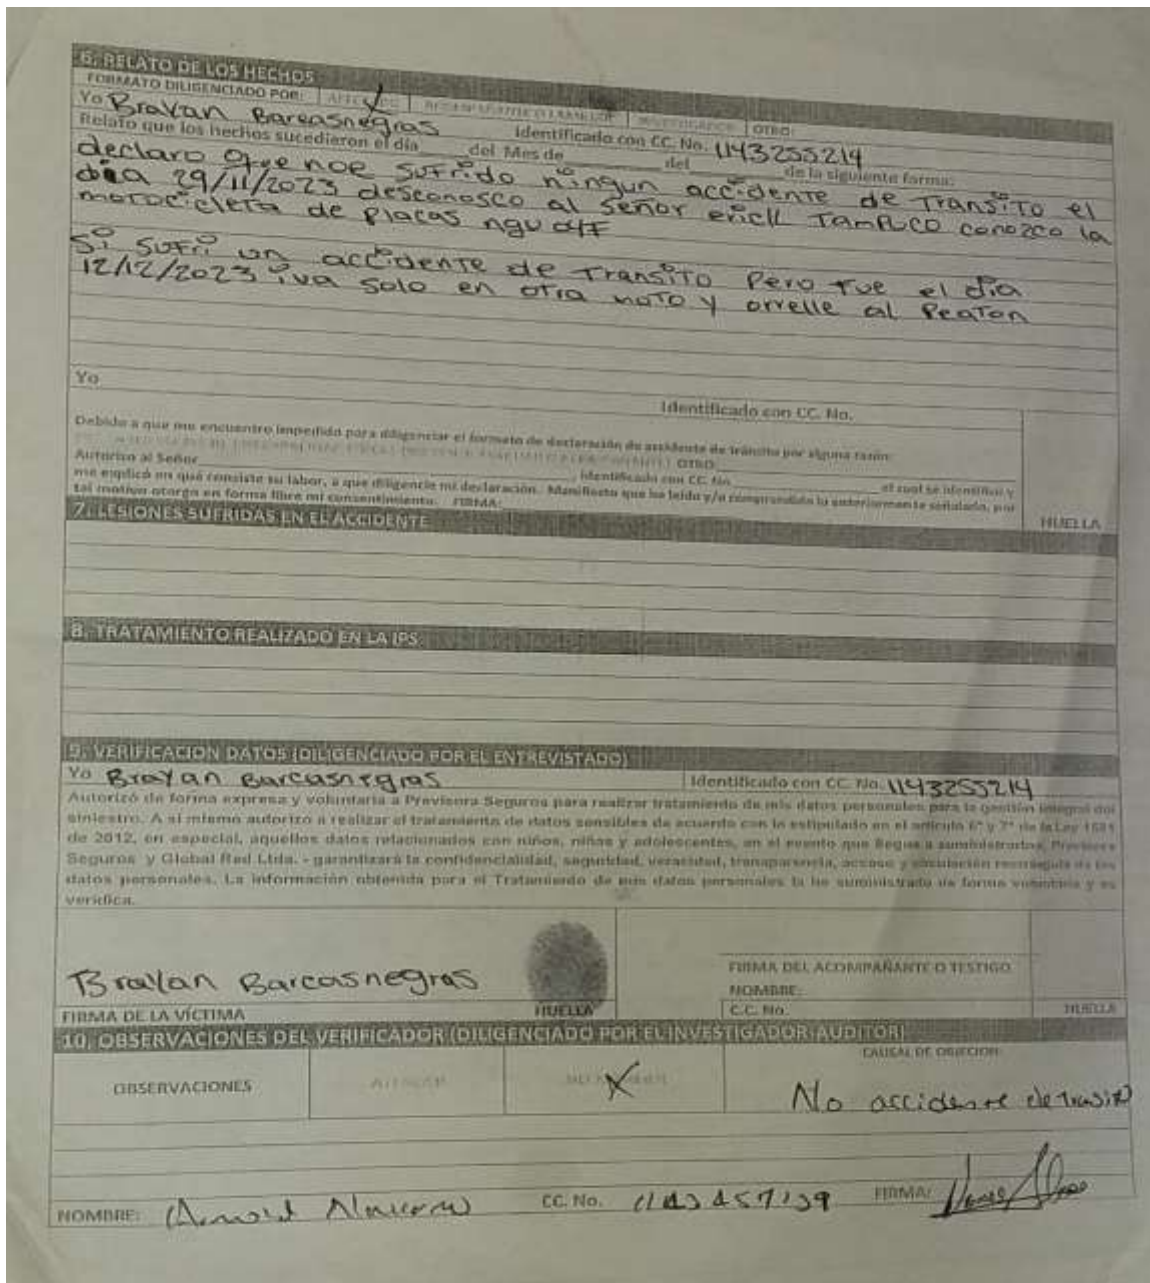 6. RELATO DE LOS HECHOS
FORMATO DILIGENCIADO POR: OTRO:
Yo Brayan Barcasnegras Identificado con CC. No. 1143255214
Relato que los hechos sucedieron el día del Mes de del de la siguiente forma:
declaro que noe sufrido ningun accidente de Transito el
dia 29/11/2023 desconosco al señor erick TAMPUCO conozco la
motocicleta de Placas
Si sufri un accidente de Transito Pero fue el dia
12/12/2023 iva solo en otra moto y orrelle al Peaton
Yo
Identificado con CC. No.
Debido a que me encuentro impedido para diligenciar el formato de declaración de accidente de tránsito por alguna razón:
OTRO
Autorizo al Señor , identificado con CC. No. el cual se identificó y
me explicó en qué consiste su labor, a que diligencie mi declaración. Manifiesto que he leído y/o comprendido lo anteriormente señalado, por
tal motivo otorgo en forma libre mi consentimiento. FIRMA:
HUELLA
7. LESIONES SUFRIDAS EN EL ACCIDENTE
8. TRATAMIENTO REALIZADO EN LA IPS
9. VERIFICACION DATOS (DILIGENCIADO POR EL ENTREVISTADO)
Yo Brayan Barcasnegras Identificado con CC. No. 1143255214
Autorizó de forma expresa y voluntaria a Previsora Seguros para realizar tratamiento de mis datos personales para la gestión integral del
siniestro. A si mismo autorizo a realizar el tratamiento de datos sensibles de acuerdo con lo estipulado en el artículo 6° y 7° de la Ley 1581
de 2012, en especial, aquellos datos relacionados con niños, niñas y adolescentes, en el evento que llegue a suministrarlos, Previsora
Seguros y Global Red Ltda. - garantizará la confidencialidad, seguridad, veracidad, transparencia, acceso y circulación restringida de los
datos personales. La información obtenida para el Tratamiento de mis datos personales la he suministrado de forma voluntaria y es
verídica.
Brayan Barcasnegras
FIRMA DE LA VÍCTIMA HUELLA
FIRMA DEL ACOMPAÑANTE O TESTIGO
NOMBRE:
C.C. No. HUELLA
10. OBSERVACIONES DEL VERIFICADOR (DILIGENCIADO POR EL INVESTIGADOR AUDITOR)
CAUSAL DE OBJECION:
OBSERVACIONES
No accidente de Transito
NOMBRE: CC. No. FIRMA: